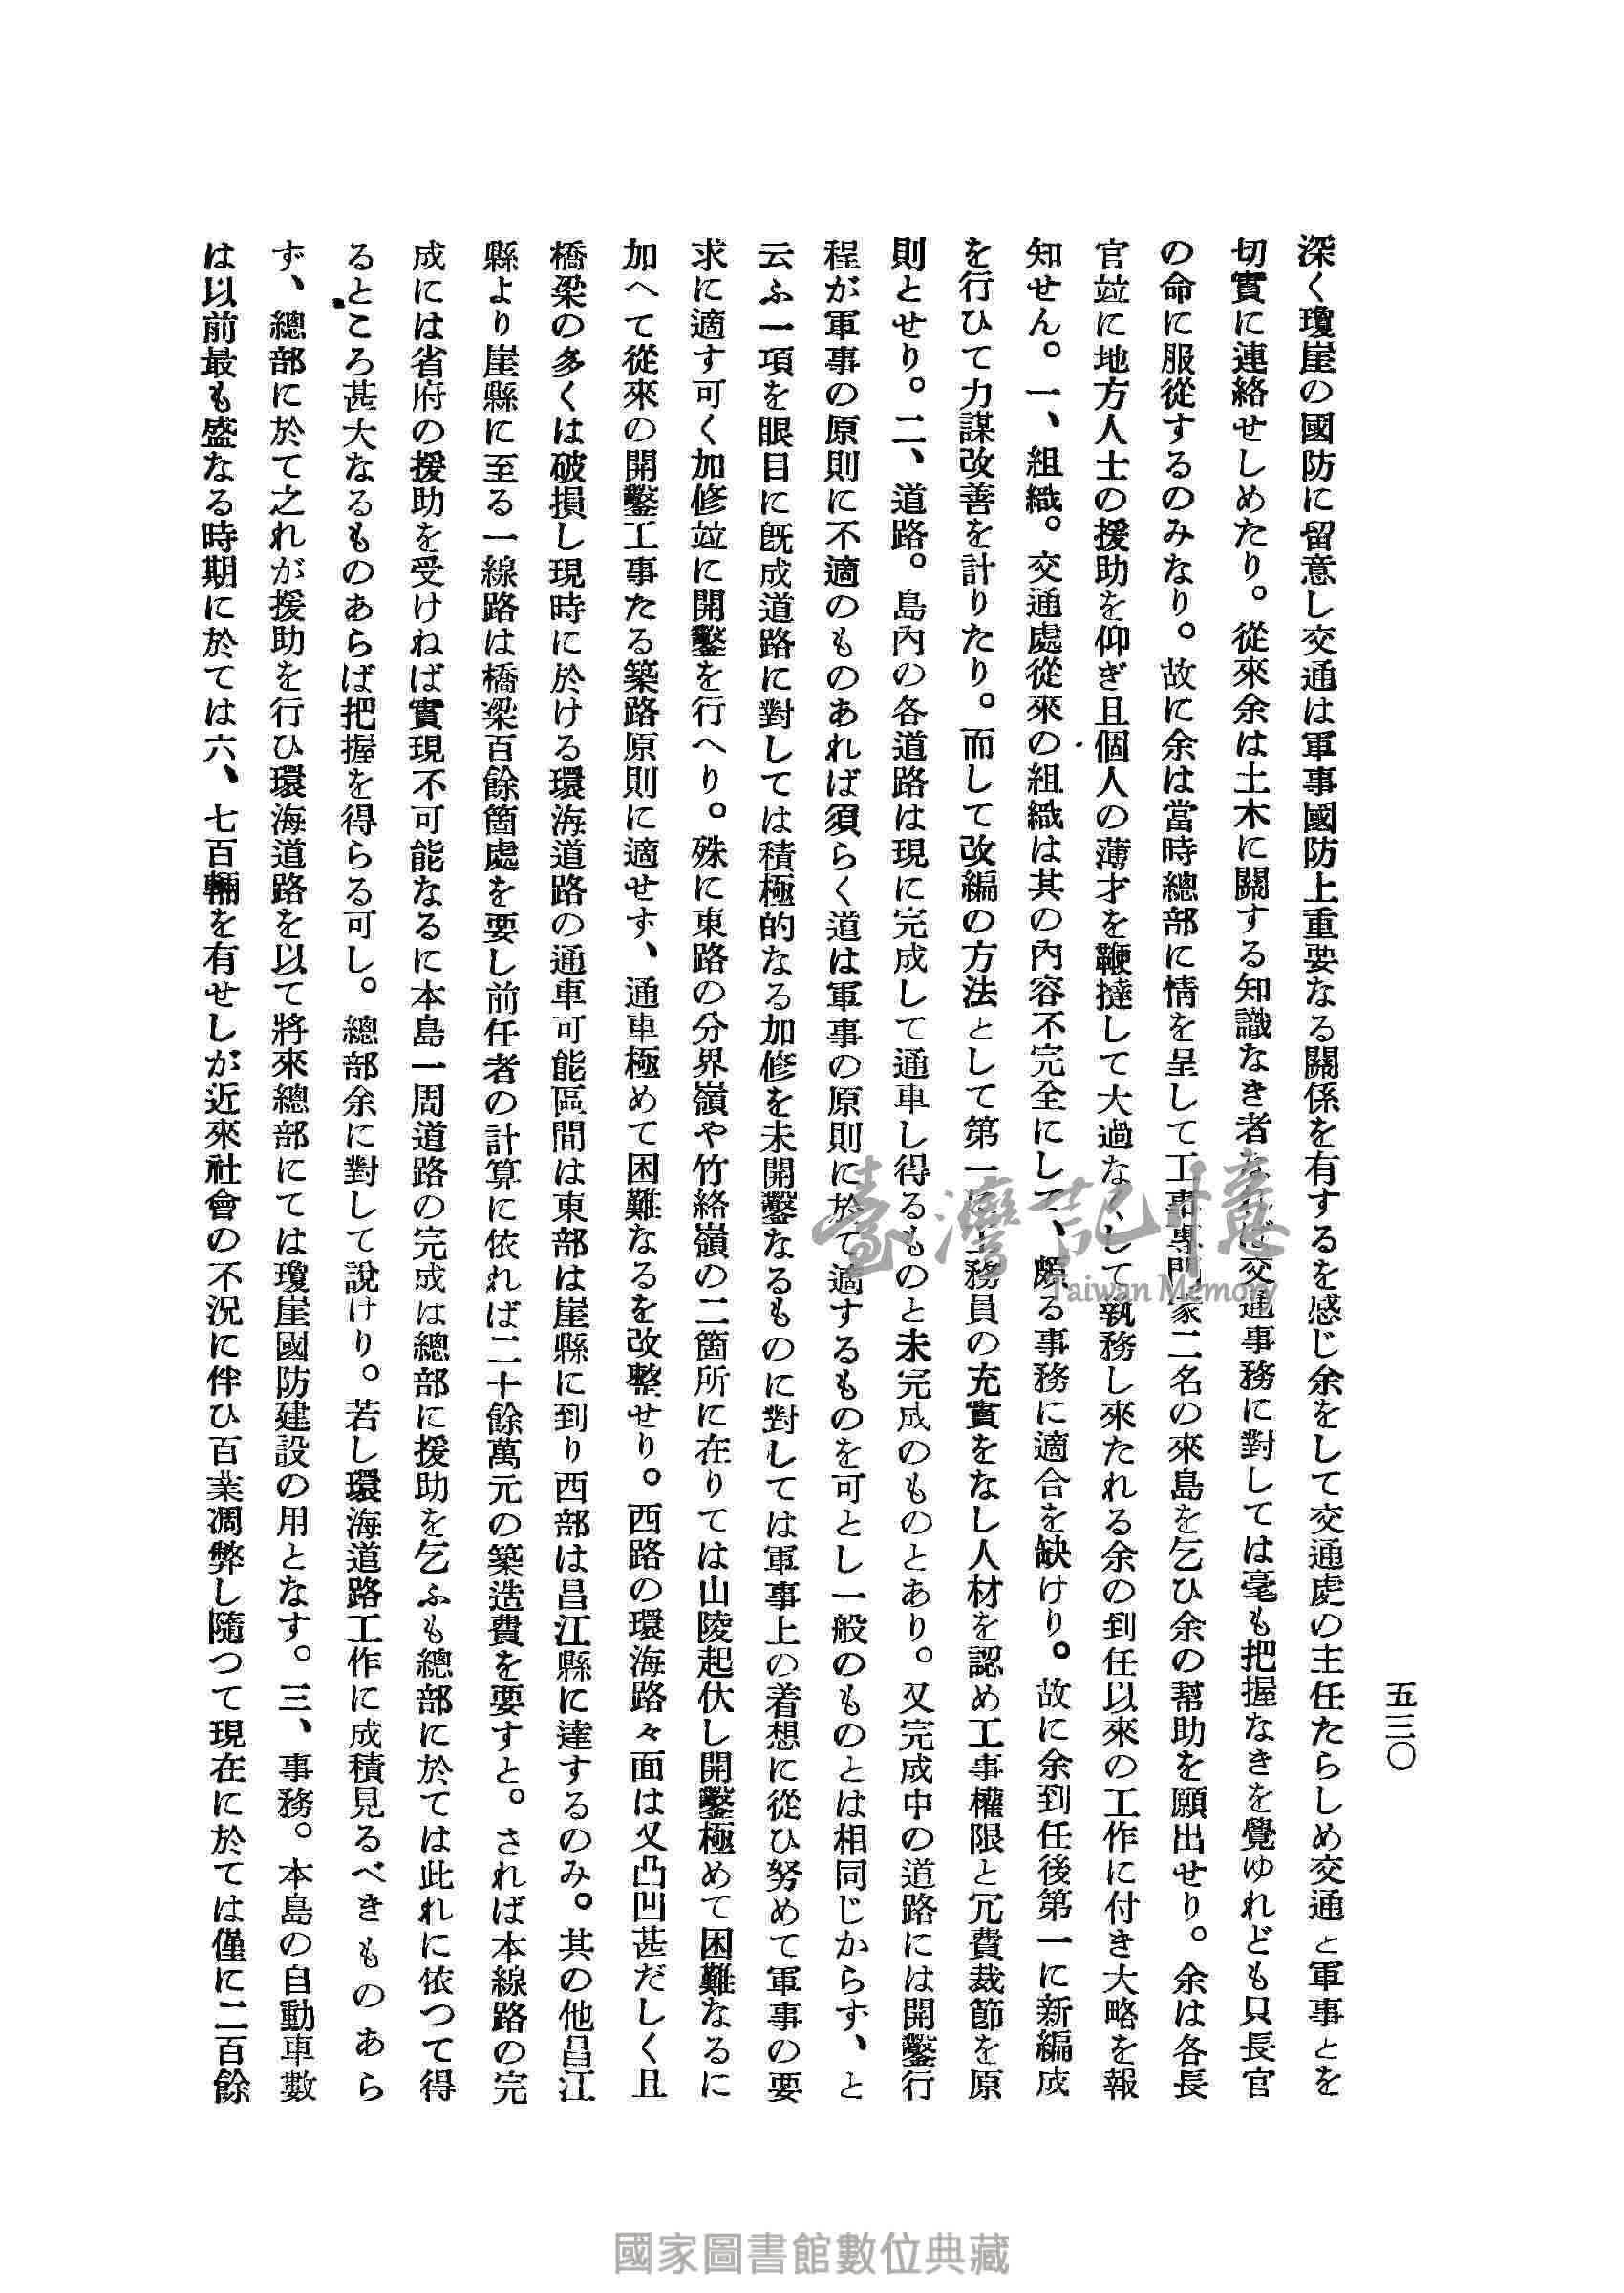 五三〇
深く瓊崖の國防に留意し交通は軍事國防上重要なる關係を有するを感じ余をして交通處の主任たらしめ交通と軍事とを
切實に連絡せしめたり。從來余は土木に關する知識なき者なれば交通事務に對しては毫も把握なきを覺ゆれども只長官
の命に服從するのみなり。故に余は當時總部に情を呈して工事專門家二名の來島を乞ひ余の幇助を願出せり。余は各長
官竝に地方人士の援助を仰ぎ且個人の薄才を鞭撻して大過なくして執務し來たれる余の到任以來の工作に付き大略を報
知せん。一、組織。交通處從來の組織は其の內容不完全にして、頗る事務に適合を缺けり。故に余到任後第一に新編成
を行ひて力謀改善を計りたり。而して改編の方法として第一に工務員の充實をなし人材を認め工事權限と冗費裁節を原
則とせり。二、道路。島內の各道路は現に完成して通車し得るものと未完成のものとあり。又完成中の道路には開鑿行
程が軍事の原則に不適のものあれば須らく道は軍事の原則に於て適するものを可とし一般のものとは相同じからず、と
云ふ一項を眼目に旣成道路に對しては積極的なる加修を未開鑿なるものに對しては軍事上の着想に從ひ努めて軍事の要
求に適す可く加修竝に開鑿を行へり。殊に東路の分界嶺や竹絡嶺の二箇所に在りては山陵起伏し開鑿極めて困難なるに
加へて從來の開鑿工事たる築路原則に適せず、通車極めて困難なるを改整せり。西路の環海路々面は又凸凹甚だしく且
橋梁の多くは破損し現時に於ける環海道路の通車可能區間は東部は崖縣に到り西部は昌江縣に達するのみ。其の他昌江
縣より崖縣に至る一線路は橋梁百餘箇處を要し前任者の計算に依れば二十餘萬元の築造費を要すと。されば本線路の完
成には省府の援助を受けねば實現不可能なるに本島一周道路の完成は總部に援助を乞ふも總部に於ては此れに依つて得
るところ甚大なるものあらば把握を得らる可し。總部余に對して說けり。若し環海道路工作に成積見るべきものあら
ず、總部に於て之れが援助を行ひ環海道路を以て將來總部にては瓊崖國防建設の用となす。三、事務。本島の自動車數
は以前最も盛なる時期に於ては六、七百輛を有せしが近來社會の不況に伴ひ百業凋弊し隨つて現在に於ては僅に二百餘
臺灣記憶
Taiwan Memory
國家圖書館數位典藏